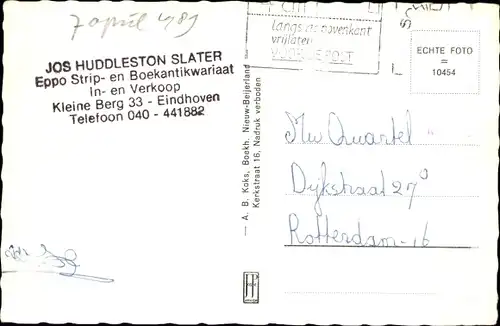 7 april 1989
JOS HUDDLESTON SLATER
Eppo Strip- en Boekantikwariaat
In- en Verkoop
Kleine Berg 33 - Eindhoven
Telefoon 040 - 441882
langs de bovenkant
vrijlaten
ECHTE FOTO
=
10454
— A. B. Koks, Boekh. Nieuw-Beijerland —
Kerkstraat 16, Nadruk verboden
Mw Quartel
Dijkstraat 27
Rotterdam-16